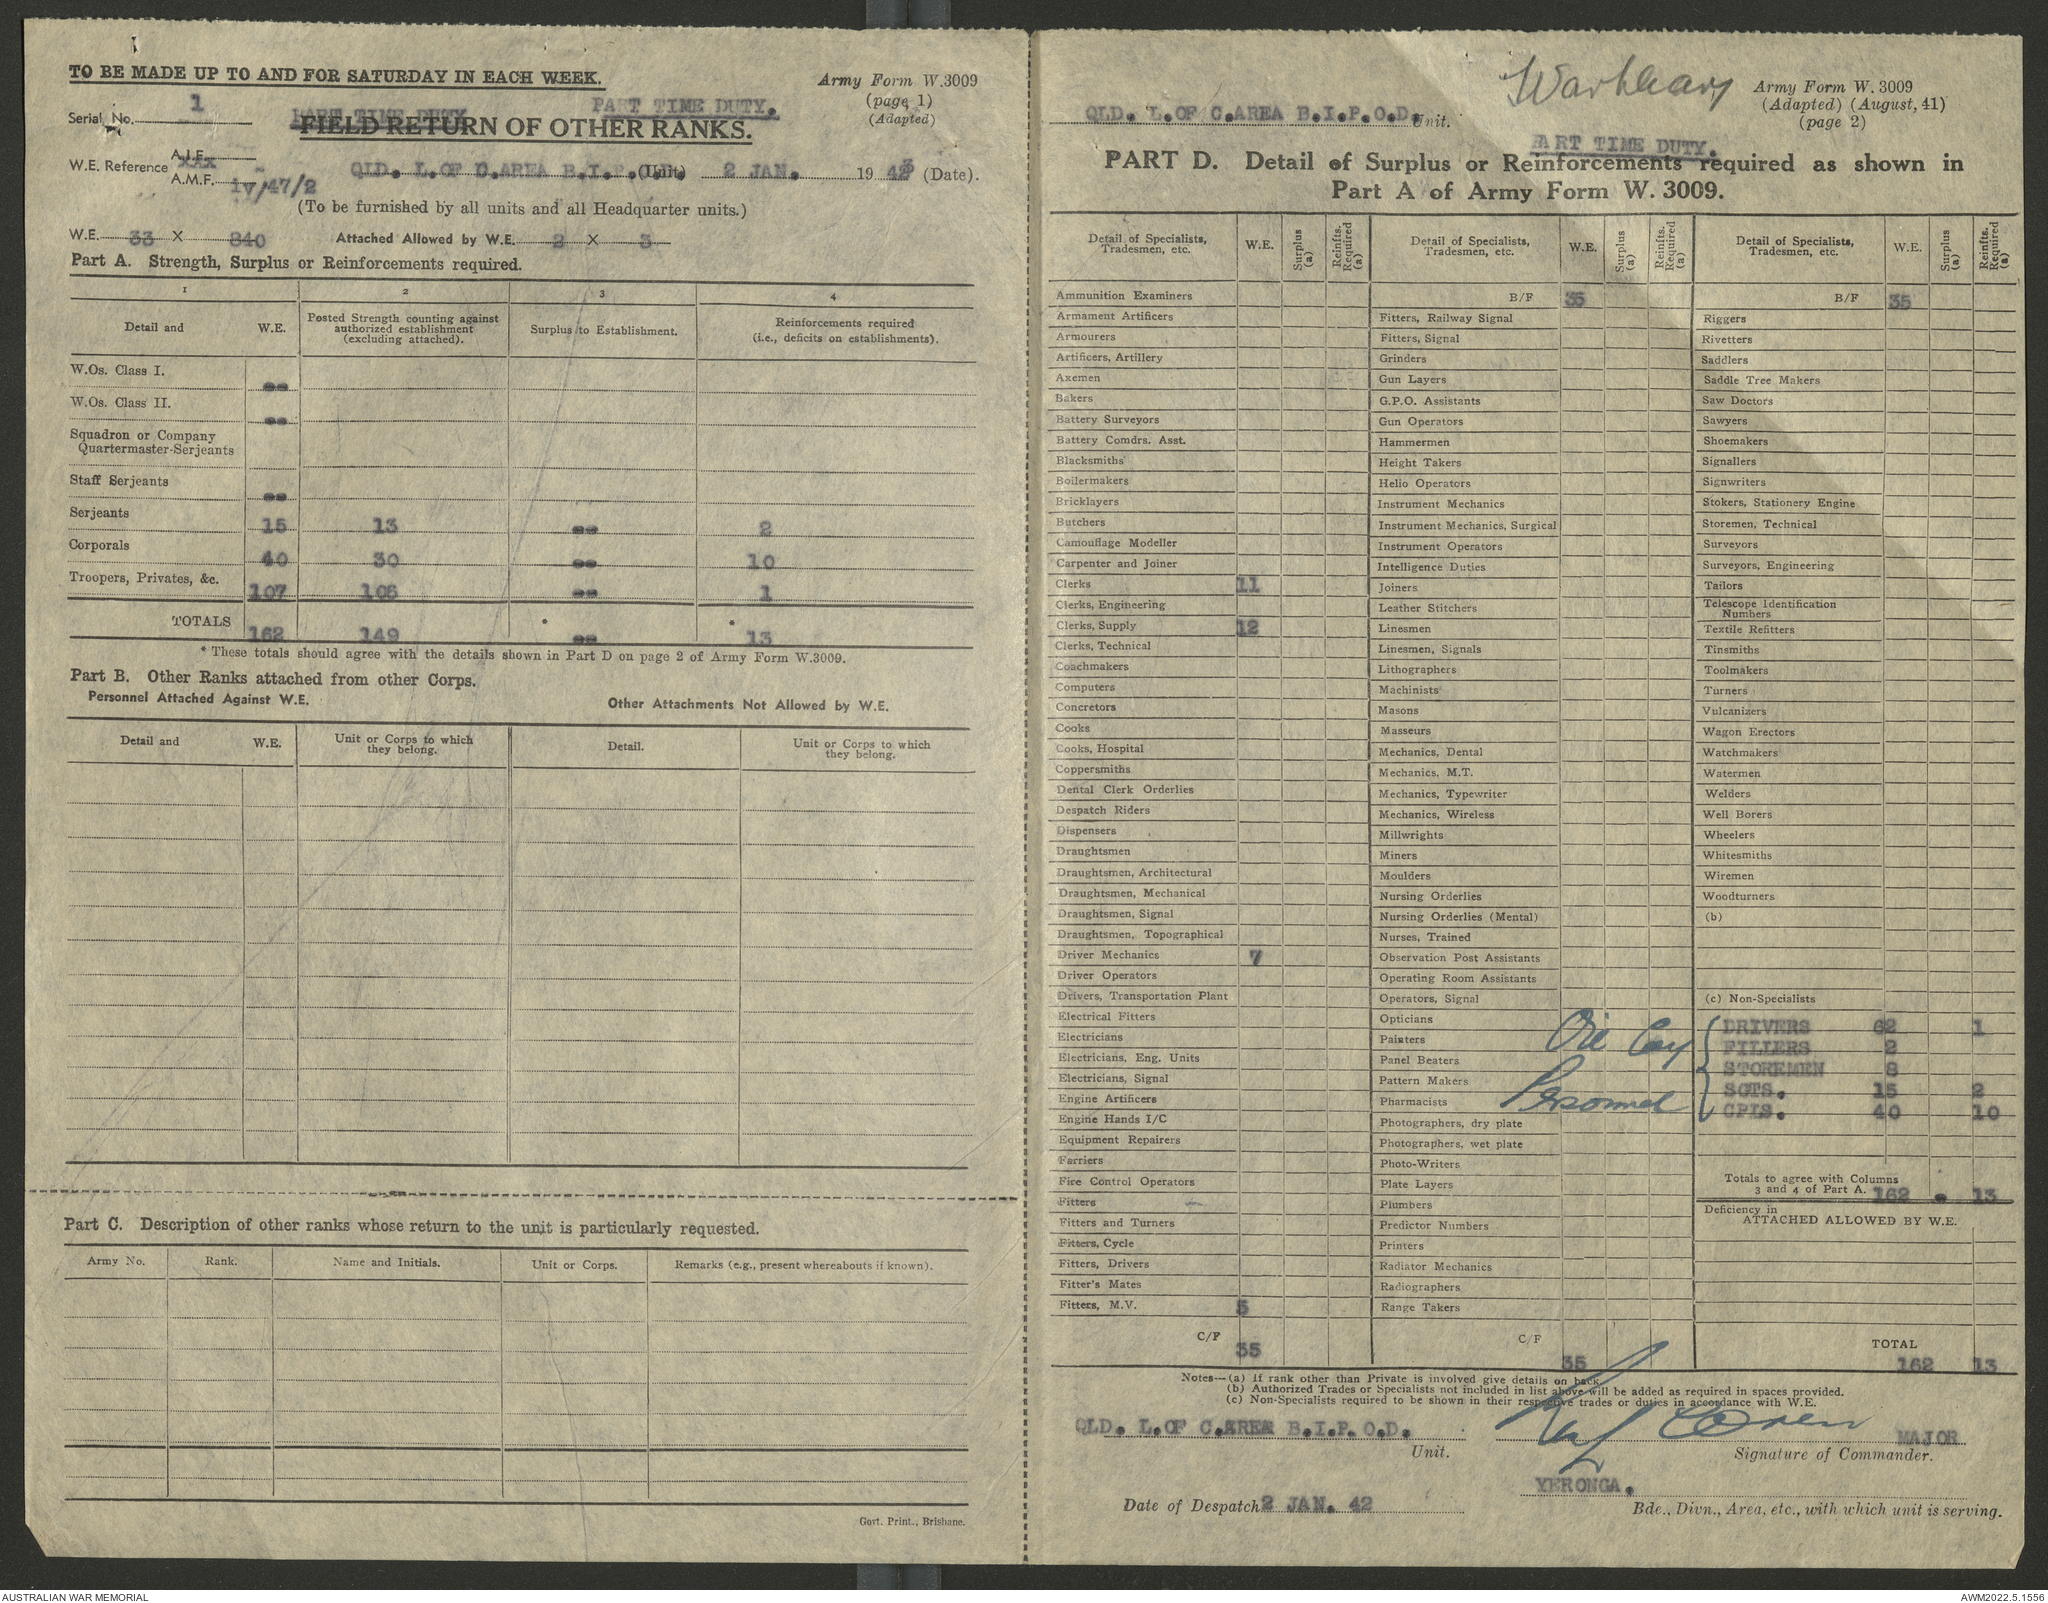 TO BE MADE UP TO AND FOR SATURDAY IN EACH WEEK.
Army Form W.3009
(page 1)
(Adapted)
Serial No. 1
PART TIME DUTY PART TIME DUTY.
FIELD RETURN OF OTHER RANKS.
W.E. Reference A.I.F. XXX
A.M.F. iv/47/2
QLD. L.OF C.AREA B.I.P.O.D. (Unit) 2 JAN. 1943 (Date).
(To be furnished by all units and all Headquarter units.)
W.E. 33 X 840 Attached Allowed by W.E. 2 X 3
Part A. Strength, Surplus or Reinforcements required.
1 2 3 4
Detail and W.E. Posted Strength counting against authorized establishment (excluding attached). Surplus to Establishment. Reinforcements required (i.e., deficits on establishments).
W.Os. Class I. --
W.Os. Class II. --
Squadron or Company
Quartermaster-Serjeants
Staff Serjeants --
Serjeants 15 13 -- 2
Corporals 40 30 -- 10
Troopers, Privates, &c. 107 106 -- 1
TOTALS 162 149 * -- * 13
* These totals should agree with the details shown in Part D on page 2 of Army Form W.3009.
Part B. Other Ranks attached from other Corps.
Personnel Attached Against W.E. Other Attachments Not Allowed by W.E.
Detail and W.E. Unit or Corps to which they belong. Detail. Unit or Corps to which they belong.
Part C. Description of other ranks whose return to the unit is particularly requested.
Army No. Rank. Name and Initials. Unit or Corps. Remarks (e.g., present whereabouts if known).
Govt. Print., Brisbane.
Army Form W. 3009
(Adapted) (August, 41)
(page 2)
QLD. L.OF C.AREA B.I.P.O.D. Unit.
PART TIME DUTY.
PART D. Detail of Surplus or Reinforcements required as shown in
Part A of Army Form W. 3009.
Detail of Specialists, Tradesmen, etc. W.E. Surplus (a) Reinfts. Required (a)
Ammunition Examiners
Armament Artificers
Armourers
Artificers, Artillery
Axemen
Bakers
Battery Surveyors
Battery Comdrs. Asst.
Blacksmiths
Boilermakers
Bricklayers
Butchers
Camouflage Modeller
Carpenter and Joiner
Clerks 11
Clerks, Engineering
Clerks, Supply 12
Clerks, Technical
Coachmakers
Computers
Concretors
Cooks
Cooks, Hospital
Coppersmiths
Dental Clerk Orderlies
Despatch Riders
Dispensers
Draughtsmen
Draughtsmen, Architectural
Draughtsmen, Mechanical
Draughtsmen, Signal
Draughtsmen, Topographical
Driver Mechanics 7
Driver Operators
Drivers, Transportation Plant
Electrical Fitters
Electricians
Electricians, Eng. Units
Electricians, Signal
Engine Artificers
Engine Hands I/C
Equipment Repairers
Farriers
Fire Control Operators
Fitters
Fitters and Turners
Fitters, Cycle
Fitters, Drivers
Fitter's Mates
Fitters, M.V. 5
C/F 35
Detail of Specialists, Tradesmen, etc. W.E. Surplus (a) Reinfts. Required (a)
B/F 35
Fitters, Railway Signal
Fitters, Signal
Grinders
Gun Layers
G.P.O. Assistants
Gun Operators
Hammermen
Height Takers
Helio Operators
Instrument Mechanics
Instrument Mechanics, Surgical
Instrument Operators
Intelligence Duties
Joiners
Leather Stitchers
Linesmen
Linesmen, Signals
Lithographers
Machinists
Masons
Masseurs
Mechanics, Dental
Mechanics, M.T.
Mechanics, Typewriter
Mechanics, Wireless
Millwrights
Miners
Moulders
Nursing Orderlies
Nursing Orderlies (Mental)
Nurses, Trained
Observation Post Assistants
Operating Room Assistants
Operators, Signal
Opticians
Painters
Panel Beaters
Pattern Makers
Pharmacists
Photographers, dry plate
Photographers, wet plate
Photo-Writers
Plate Layers
Plumbers
Predictor Numbers
Printers
Radiator Mechanics
Radiographers
Range Takers
C/F 35
Detail of Specialists, Tradesmen, etc. W.E. Surplus (a) Reinfts. Required (a)
B/F 35
Riggers
Rivetters
Saddlers
Saddle Tree Makers
Saw Doctors
Sawyers
Shoemakers
Signallers
Signwriters
Stokers, Stationery Engine
Storemen, Technical
Surveyors
Surveyors, Engineering
Tailors
Telescope Identification
Numbers
Textile Refitters
Tinsmiths
Toolmakers
Turners
Vulcanizers
Wagon Erectors
Watchmakers
Watermen
Welders
Well Borers
Wheelers
Whitesmiths
Wiremen
Woodturners
(b)
(c) Non-Specialists
Oil Coy
Personnel
DRIVERS 62 1
FILLERS 2
STOREMEN 8
SGTS. 15 2
CPLS. 40 10
Totals to agree with Columns
3 and 4 of Part A. 162 - 13
Deficiency in
ATTACHED ALLOWED BY W.E.
TOTAL 162 13
Notes—(a) If rank other than Private is involved give details on back.
(b) Authorized Trades or Specialists not included in list above will be added as required in spaces provided.
(c) Non-Specialists required to be shown in their respective trades or duties in accordance with W.E.
QLD. L.OF C.AREA B.I.P.O.D. MAJOR
Unit. Signature of Commander.
YERONGA.
Date of Despatch 2 JAN. 42 Bde., Divn., Area, etc., with which unit is serving.
AUSTRALIAN WAR MEMORIAL AWM2022.5.1556